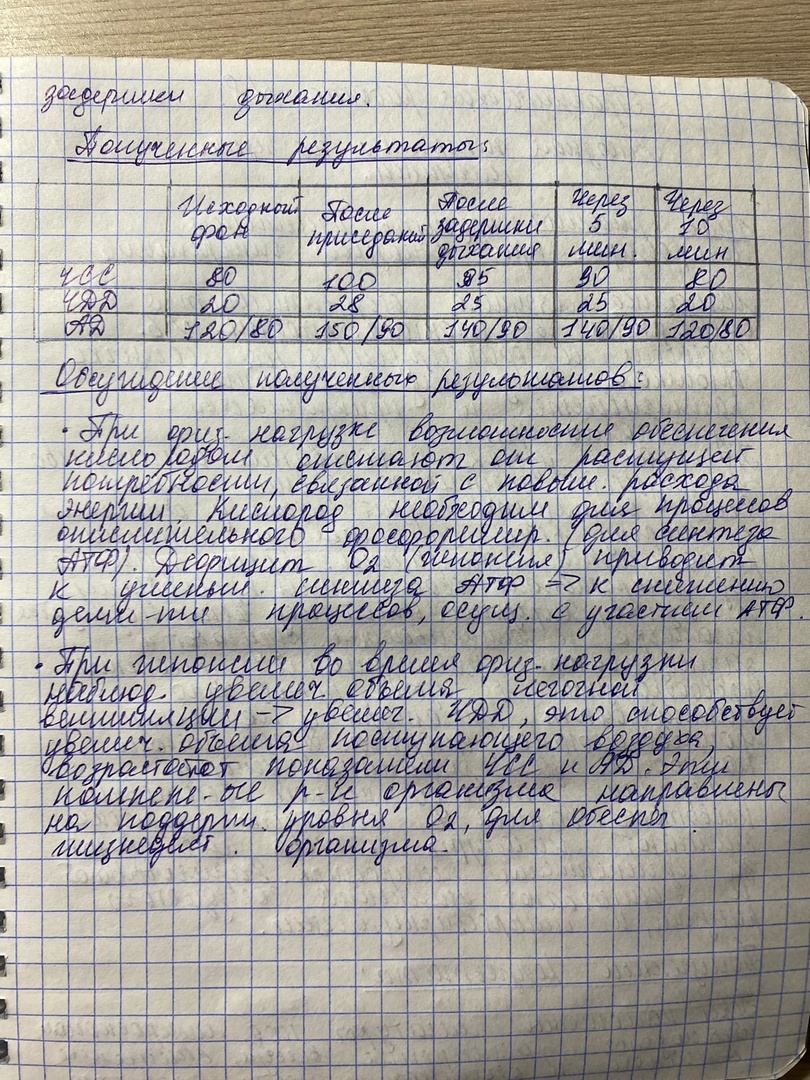 задержки дыхания.
Полученные результаты:
Исходный фон | После приседаний | После задержки дыхания | Через 5 мин. | Через 10 мин
ЧСС 80 100 95 90 80
ЧДД 20 28 25 25 20
АД 120/80 150/90 140/90 140/90 120/80
Обсуждение полученных результатов:
• При физ. нагрузке возможности обеспечения
кислородом отстают от растущей
потребности, связанной с повыш. расхода
энергии. Кислород необходим для процессов
окислительного фосфорилир. (для синтеза
АТФ). Дефицит O2 (гипоксия) приводит
к уменьш. синтеза АТФ => к снижению
деят-ти процессов, осущ. с участием АТФ.
• При гипоксии во время физ. нагрузки
наблюд. увелич. объема легочной
вентиляции -> увелич. ЧДД, это способствует
увелич. объема поступающего воздуха,
возрастают показатели ЧСС и АД. Эти
компен-ые р-и организма направлены
на поддерж. уровня O2, для обеспеч
жизнедеят. организма.